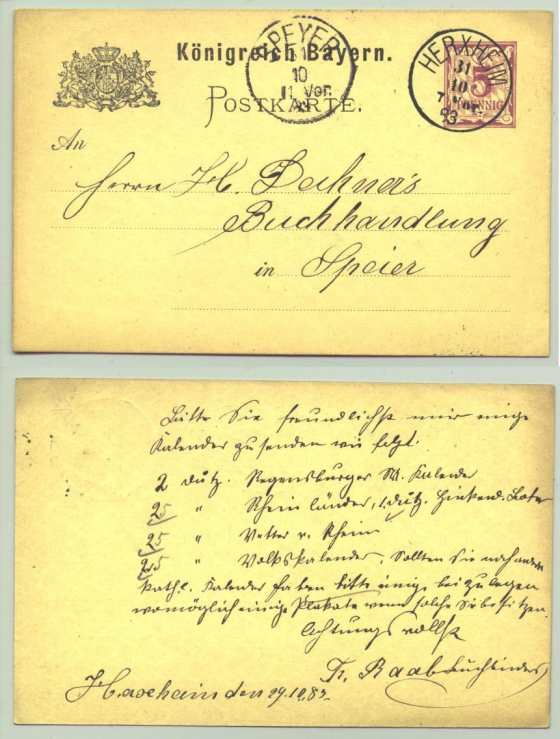 Königreich Bayern.
SPEYER
10
11. Vor.
POSTKARTE.
HERXHEIM
31
10
83
5
PFENNIG
An
Herrn H. Dechner's
Buchhandlung
in Speier
Bitte Sie freundlichst mir einige
Kalender zu senden wie folgt:
2 dutz. Regensburger M. Kalender
25 " Rheinländer, 1 dutz. Hinkend. Bote
25 " Vetter v. Rhein
" Volkskalender, Sollten Sie noch andere
kath. Kalender haben bitte einige beizulegen
womöglich einige Plakate wenn solche Sie besitzen.
Achtungsvollst
Fr. Raab Buchbinder
Herxheim den 29.10.83.